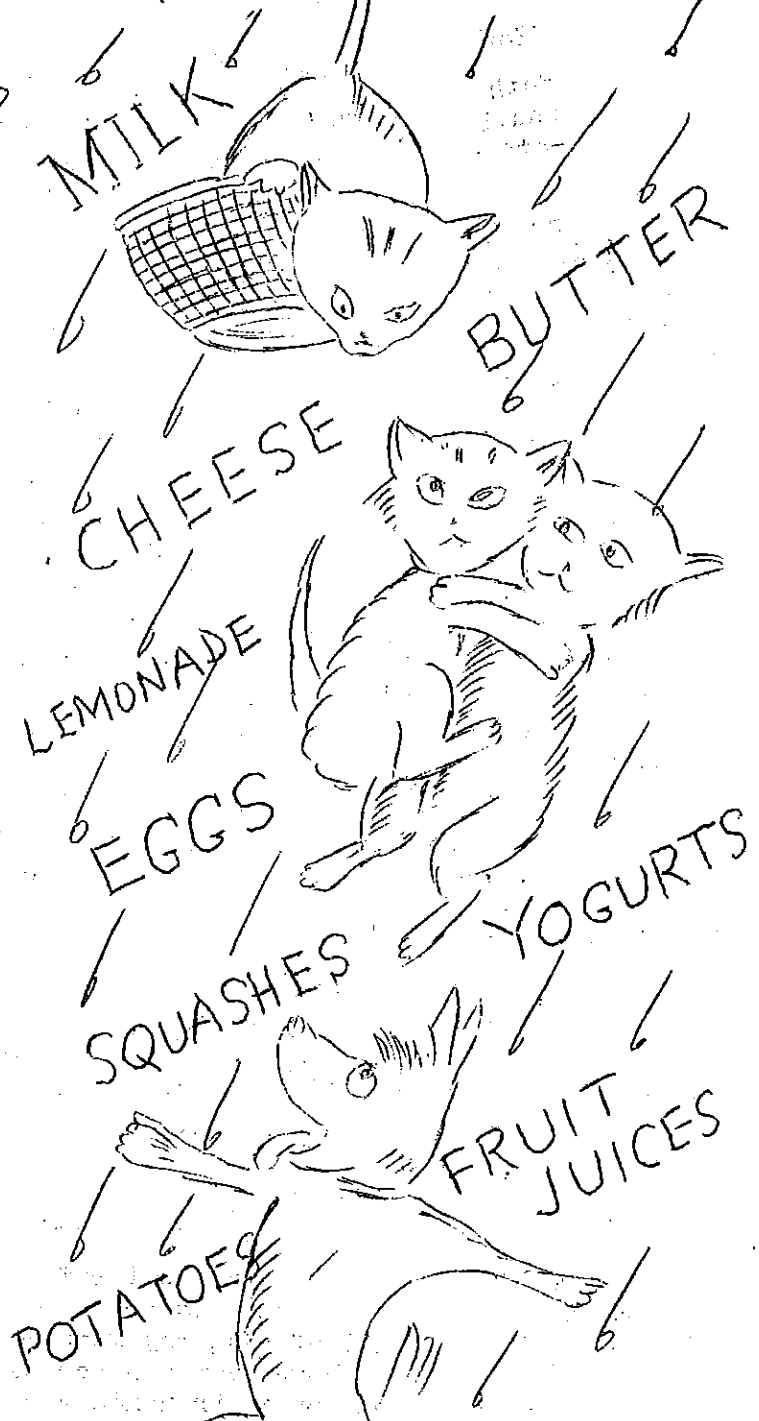 MILK
BUTTER
CHEESE
LEMONADE
EGGS
YOGURTS
SQUASHES
FRUIT
JUICES
POTATOES